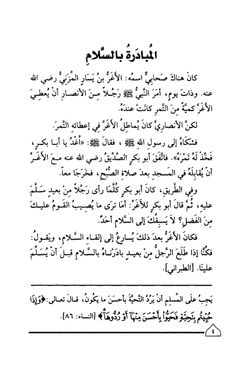 المُبادَرةُ بالسَّلامِ
كانَ هناكَ صَحابيٌّ اسمُهُ: الأَغَرُّ بنُ يَسَارٍ المُزَنِيُّ رضي الله
عنه. وذاتَ يومٍ، أمَرَ النَّبيُّ ﷺ رَجُلاً مِنَ الأنصارِ أن يُعطِيَ
الأغَرَّ كميَّةً مِنَ التَّمرِ كانَتْ عندَهُ.
لكنَّ الأنصاريَّ كانَ يُماطِلُ الأغَرَّ في إعطائِهِ التَّمرَ.
فشَكاهُ إلى رسولِ اللهِ ﷺ، فقالَ ﷺ: «اُغْدُ يا أبا بكرٍ،
فَخُذْ لَهُ تَمْرَهُ». فاتَّفَقَ أبو بكرٍ الصِّدِّيقُ رضي الله عنه معَ الأغَرِّ
أن يُقابِلَهُ في المسجدِ بعدَ صلاةِ الصُّبحِ، فخَرَجَا معاً.
وفي الطَّريقِ، كانَ أبو بكرٍ كُلَّمَا رأى رَجُلاً مِنْ بعيدٍ سَلَّمَ
عليهِ، ثُمَّ قالَ أبو بكرٍ للأغَرِّ: أمَا تَرى ما يُصِيبُ القَومُ عليكَ
مِنَ الفَضلِ؟ لا يَسبِقْكَ إلى السَّلامِ أحدٌ.
فكانَ الأغَرُّ بعدَ ذلكَ يُسارِعُ إلى إلقاءِ السَّلامِ، ويقولُ:
فكُنَّا إذا طَلَعَ الرَّجُلُ مِنْ بعيدٍ بادَرْناهُ بالسَّلامِ قبلَ أنْ يُسَلِّمَ
علينَا. [الطبراني].
يَجِبُ على المُسلِمِ أنْ يَرُدَّ التَّحيَّةَ بأحسَنَ ما يَكُونُ، قالَ تعالى: ﴿وَإِذَا
حُيِّيتُم بِتَحِيَّةٍ فَحَيُّوا بِأَحْسَنَ مِنْهَا أَوْ رُدُّوهَا﴾ [النساء: ٨٦].
٤